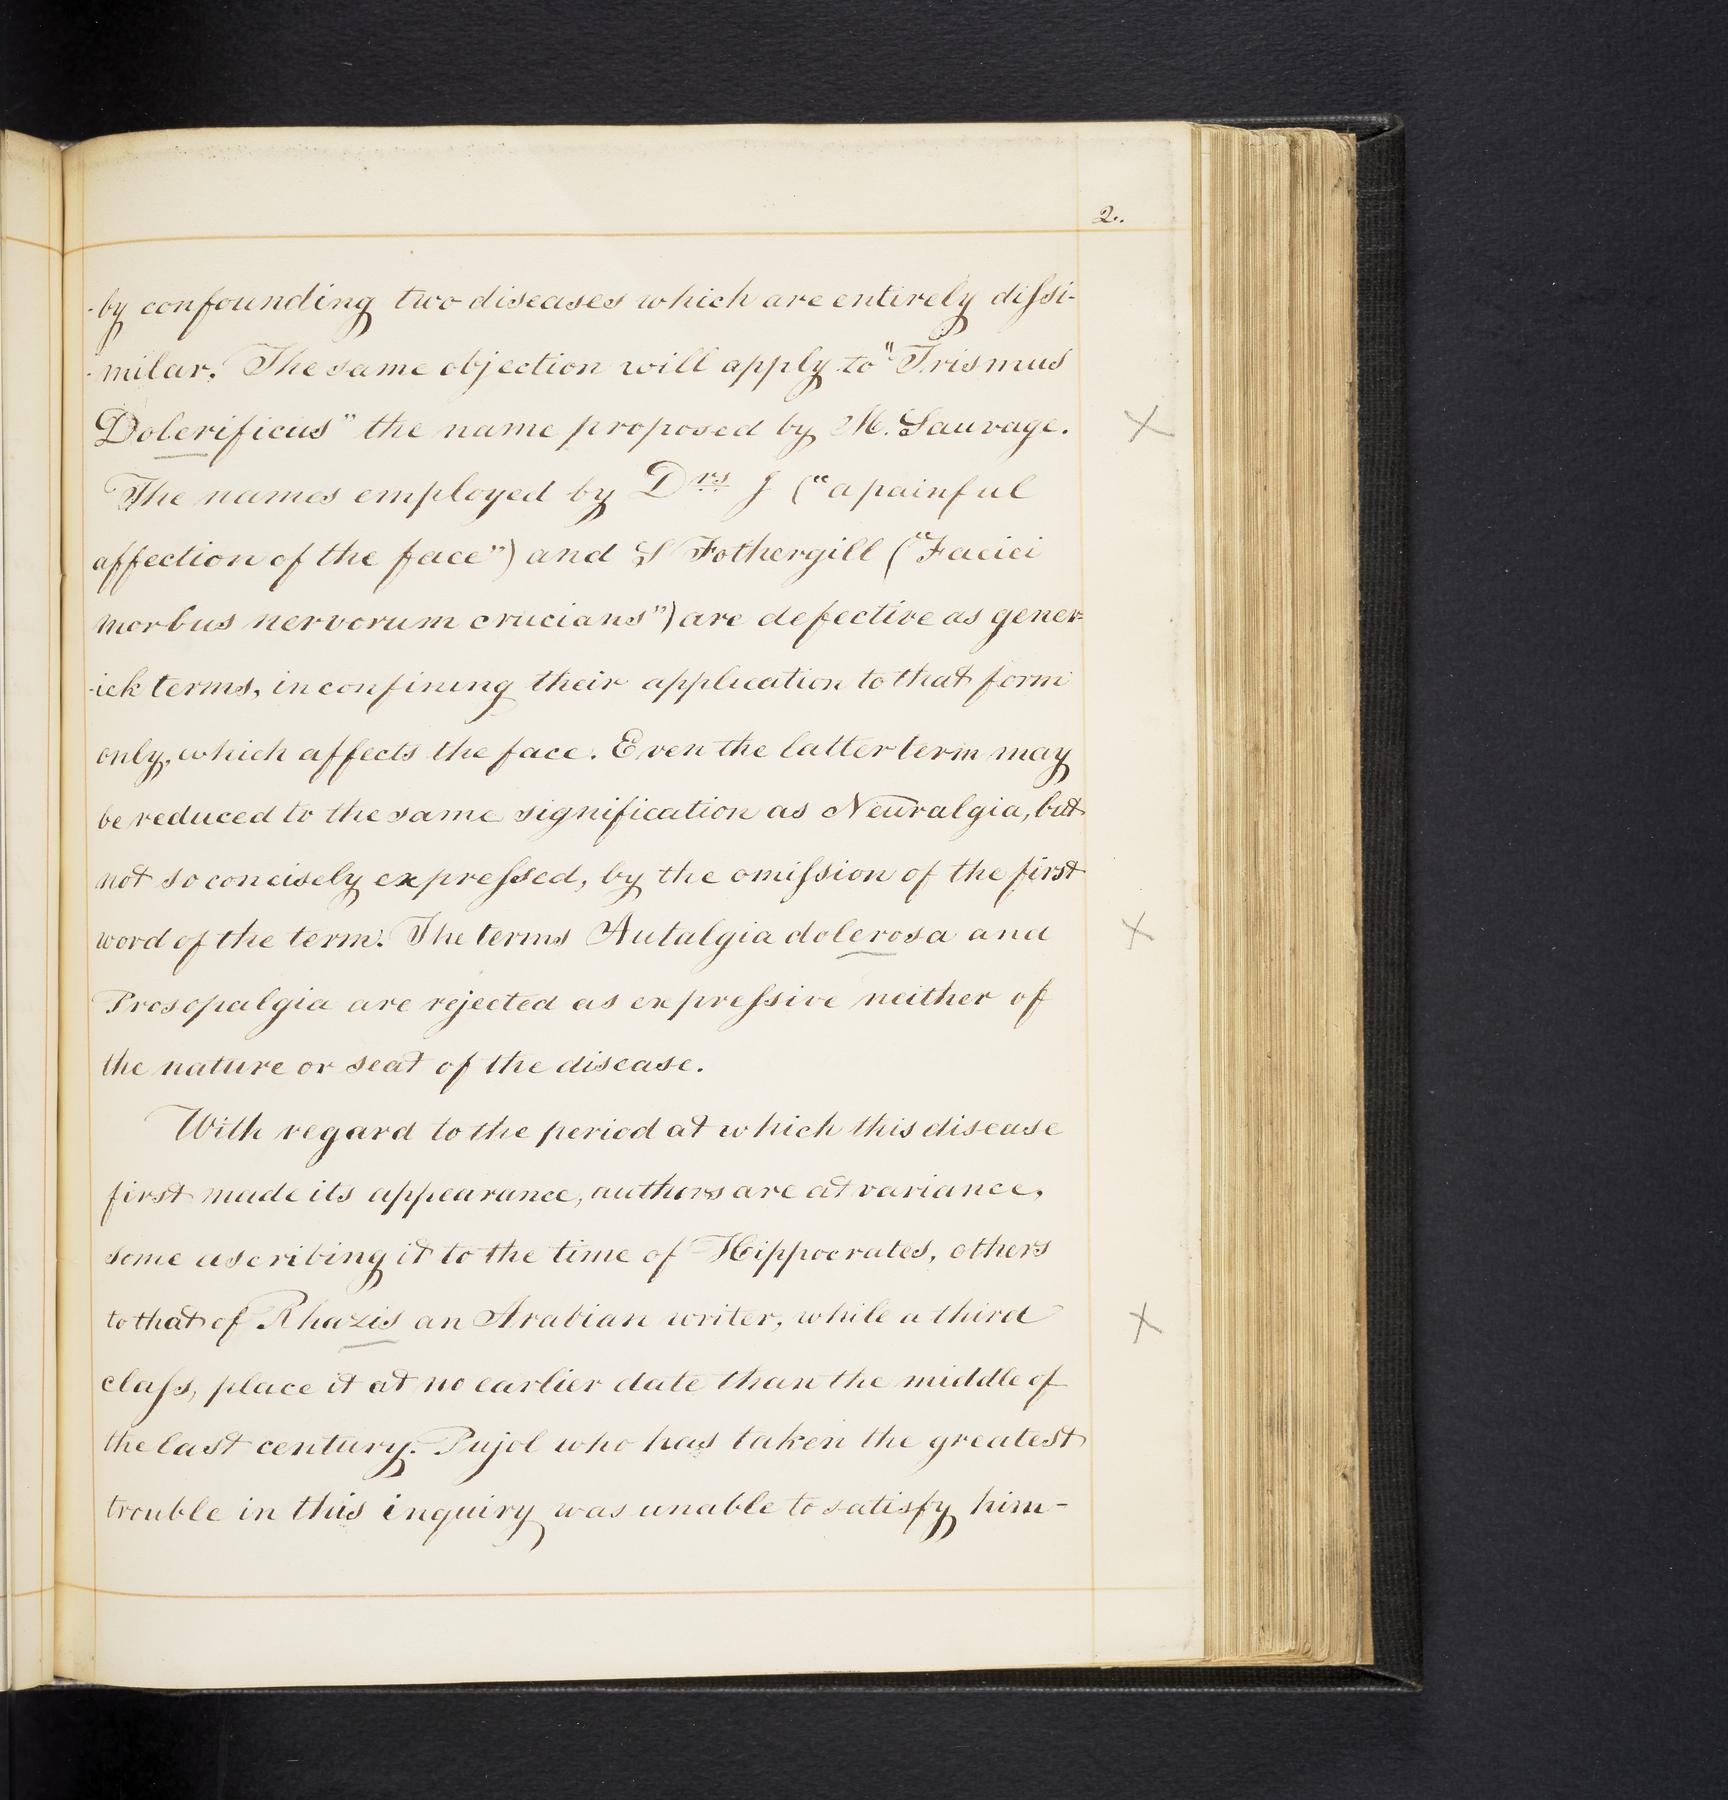 2.
by confounding two diseases which are entirely dissi-
-milar. The same objection will apply to "Trismus
Dolerificus" the name proposed by M. Sauvage.
The names employed by Drs J ("a painful
affection of the face") and S Fothergill ("Faciei
morbus nervorum crucians") are defective as gener-
-ick terms, in confining their application to that form
only, which affects the face. Even the latter term may
be reduced to the same signification as Neuralgia, but
not so concisely expressed, by the omission of the first
word of the term. The terms Autalgia dolerosa and
Prosopalgia are rejected as expressive neither of
the nature or seat of the disease.
With regard to the period at which this disease
first made its appearance, authors are at variance,
some ascribing it to the time of Hippocrates, others
to that of Rhazis an Arabian writer, while a third
class, place it at no earlier date than the middle of
the last century. Pujol who has taken the greatest
trouble in this inquiry was unable to satisfy him-